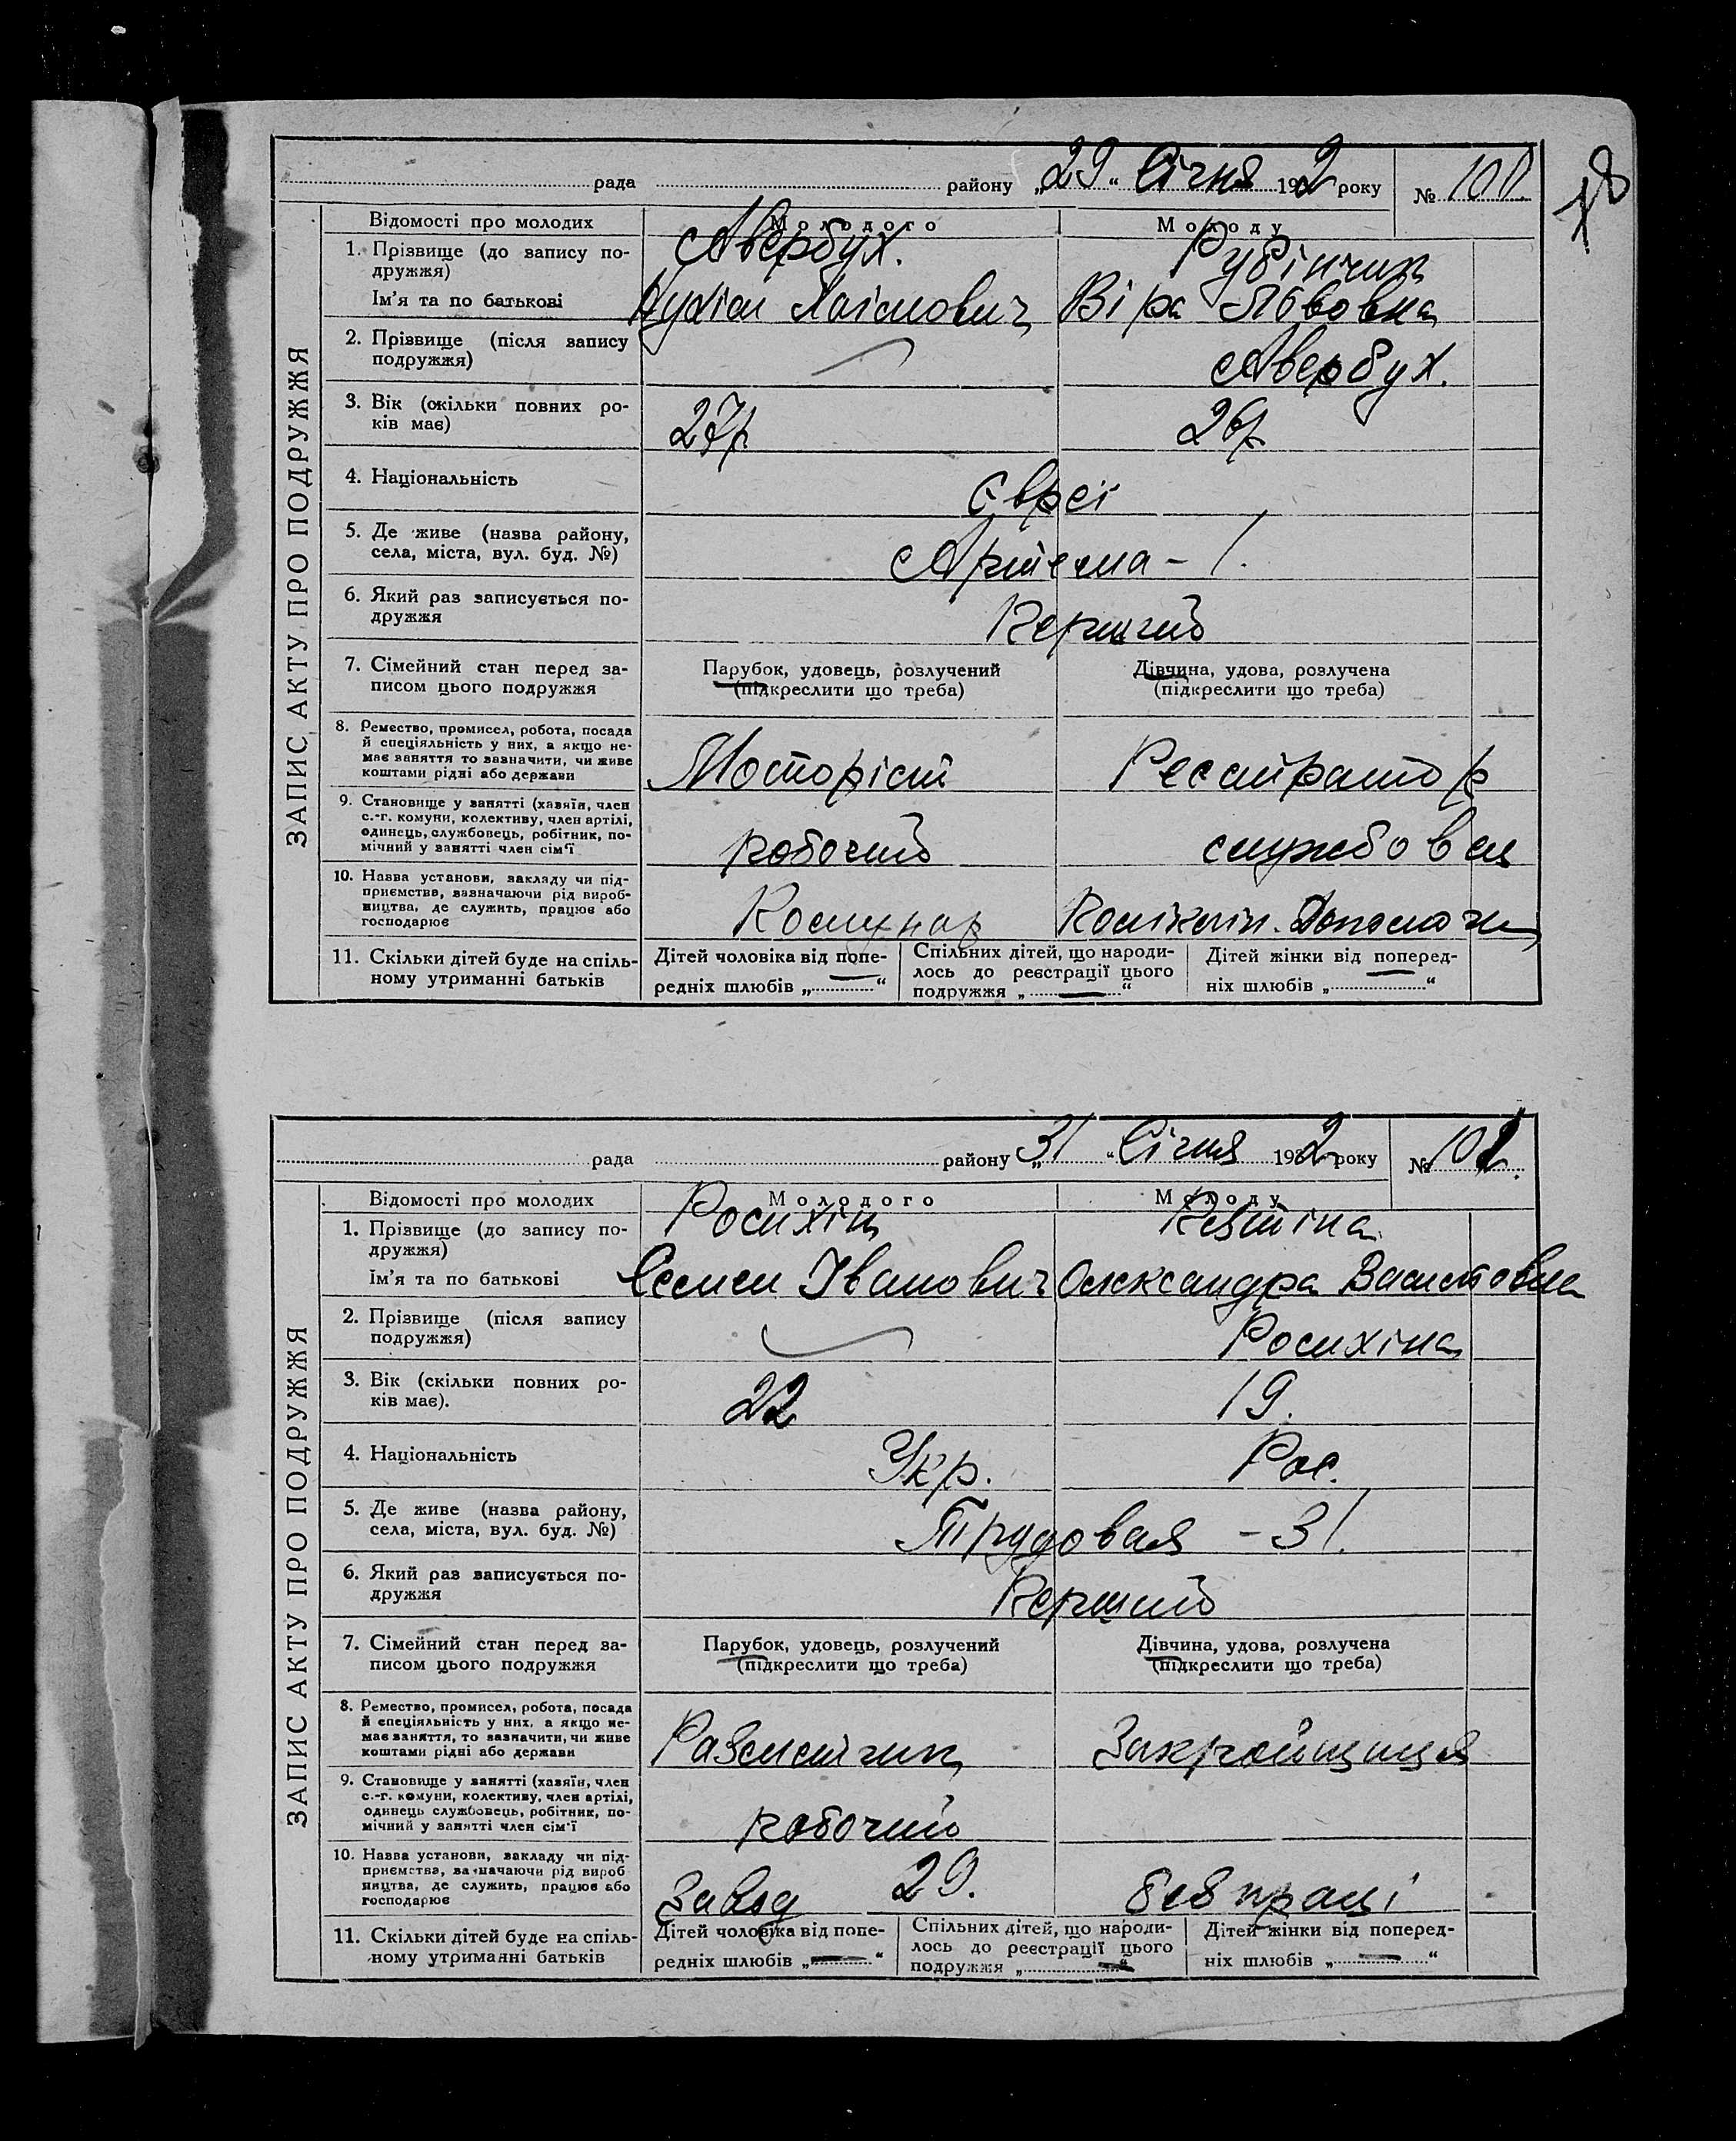 18
рада району „29“ Січня 1932 року № 100.
Відомості про молодих Молодого Молоду
1. Прізвище (до запису по- Авербух. Рубінчик
дружжя)
Ім'я та по батькові Нухім Хаімович Віра Львовна
2. Прізвище (після запису Авербух.
подружжя)
3. Вік (скільки повних ро- 27р 26р
ків має)
4. Національність Євреї
5. Де живе (назва району, Артема – 1.
села, міста, вул. буд. №)
6. Який раз записується по- Перший
дружжя
7. Сімейний стан перед за- Парубок, удовець, розлучений Дівчина, удова, розлучена
писом цього подружжя (підкреслити що треба) (підкреслити що треба)
8. Ремество, промисел, робота, посада
й спеціяльність у них, а якщо не-
має заняття то зазначити, чи живе Моторіст
коштами рідні або держави
9. Становище у занятті (хазяїн, член
с.-г. комуни, колективу, член артілі,
одинець, службовець, робітник, по- робочий службовец
мічний у занятті член сім'ї
10. Назва установи, закладу чи під-
приємства, зазначаючи рід вироб-
ництва, де служить, працює або Комунар
господарює
11. Скільки дітей буде на спіль- Дітей чоловіка від попе- Спільних дітей, що народи- Дітей жінки від поперед-
ному утриманні батьків редніх шлюбів „ — “ лось до реєстрації цього ніх шлюбів „ “
подружжя „ — “
ЗАПИС АКТУ ПРО ПОДРУЖЖЯ
рада району „31“ Січня 1932 року № 101.
Відомості про молодих Молодого Молоду
1. Прізвище (до запису по- Росихін
дружжя)
Ім'я та по батькові Семен Іванович Олександра Василовна
2. Прізвище (після запису Росихіна
подружжя)
3. Вік (скільки повних ро- 22 19.
ків має).
4. Національність Укр. Рос.
5. Де живе (назва району, Трудовая – 31.
села, міста, вул. буд. №)
6. Який раз записується по- Перший
дружжя
7. Сімейний стан перед за- Парубок, удовець, розлучений Дівчина, удова, розлучена
писом цього подружжя (підкреслити що треба) (підкреслити що треба)
8. Ремество, промисел, робота, посада
й спеціяльність у них, а якщо не-
має заняття, то зазначити, чи живе Закройщиця
коштами рідні або держави
9. Становище у занятті (хазяїн, член
с.-г. комуни, колективу, член артілі,
одинець службовець, робітник, по- робочий
мічний у занятті член сім'ї
10. Назва установи, закладу чи під-
приємства, зазначаючи рід вироб
ництва, де служить, працює або Завод 29. без праці
господарює
11. Скільки дітей буде на спіль- Дітей чоловіка від попе- Спільних дітей, що народи- Дітей жінки від поперед-
ному утриманні батьків редніх шлюбів „ — “ лось до реєстрації цього ніх шлюбів „ — “
подружжя „ — “
ЗАПИС АКТУ ПРО ПОДРУЖЖЯ